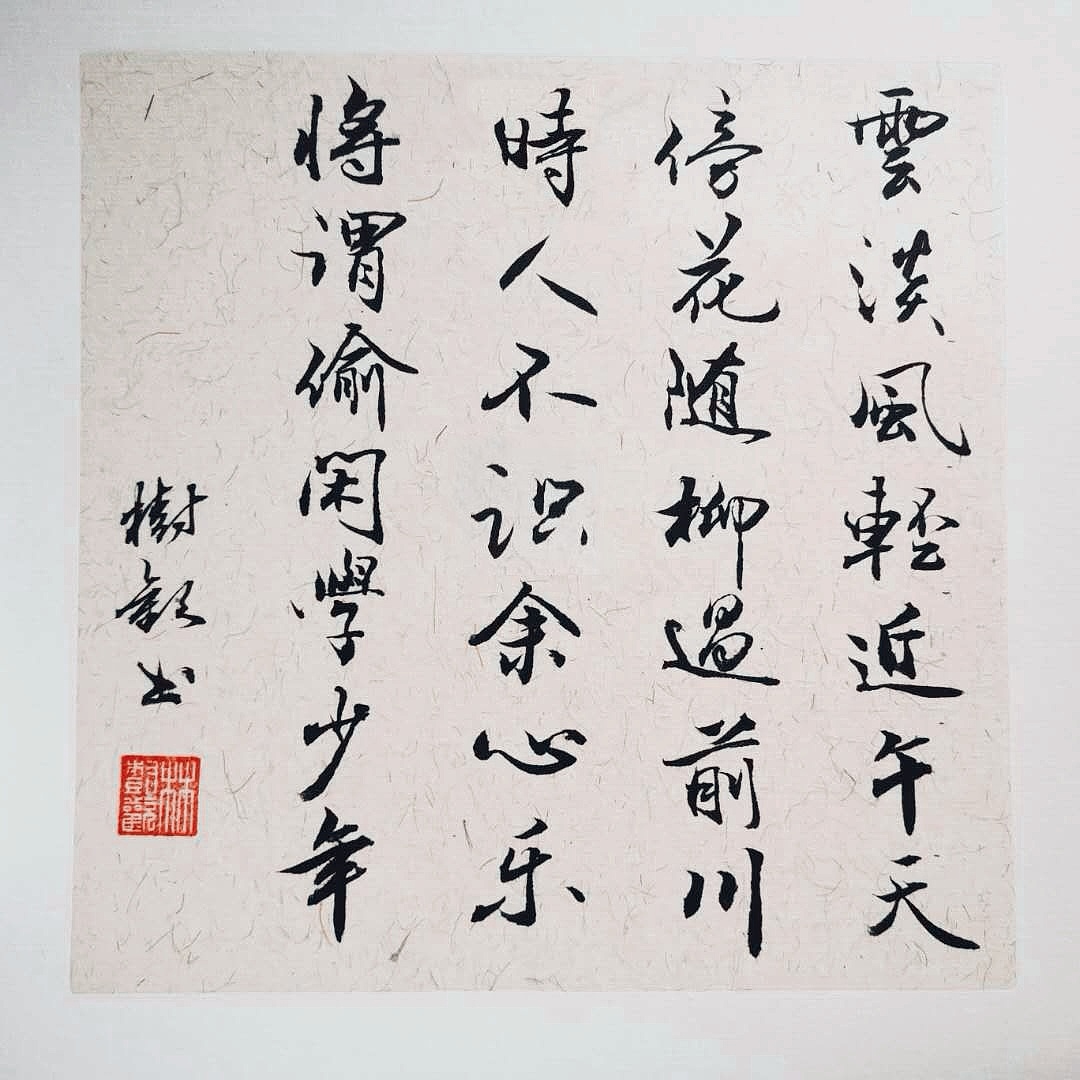 雲淡風輕近午天
傍花随柳過前川
時人不识余心乐
将谓偷闲學少年
樹书